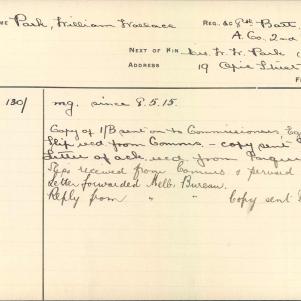 ME Park, William Wallace REG. NO. 8th Batt.
A. Co. 2nd
NEXT OF KIN W. W. Park
ADDRESS 19 Street
130/ mg. since 8.5.15.
Copy of 1/B sent on to Commissioners,
Slip recd from Comms. - copy sent
Letter of ack. recd. from
received from Comms & perused
Letter forwarded Melb. Bureau.
Reply from " " Copy sent